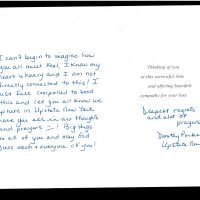 I can't begin to imagine how
you all must feel, I know my
heart is heavy and I am not
directly connected to this! I
just felt compelled to send
this and let you all know we
up here in Upstate New York
have you all in our thoughts
and prayers! Big Hugs
to all of you and May God
Bless each & everyone of you!
Thinking of you
at this sorrowful time
and offering heartfelt
sympathy for your loss.
Deepest regrets
and alot of
prayers
Upstate New